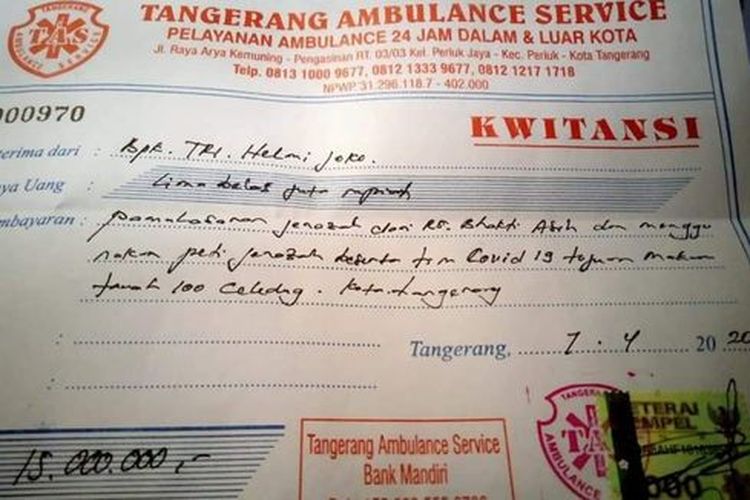 TANGERANG AMBULANCE SERVICE
PELAYANAN AMBULANCE 24 JAM DALAM & LUAR KOTA
Jl. Raya Arya Kemuning - Pengasinan RT. 03/03 Kel. Periuk Jaya - Kec. Periuk - Kota Tangerang
Telp. 0813 1000 9677, 0812 1333 9677, 0812 1217 1718
NPWP 31.296.118.7 - 402.000
TANGERANG
TAS
AMBULANCE SERVICE
000970
KWITANSI
erima dari : Bpk. TRI. Helmi Joko.
ya Uang : Lima belas juta rupiah
mbayaran : pamakasaran jenazah dari RS. Bhakti Asih dan menggu
nakan peti jenazah beserta tim Covid 19 tujuan makam
tanah 100 Ciledug. Kota tangerang
Tangerang, 7 . 4 2020
15.000.000,-
Tangerang Ambulance Service
Bank Mandiri
TANGERANG
TAS
AMBULANCE
ETERAI
EMPEL
000